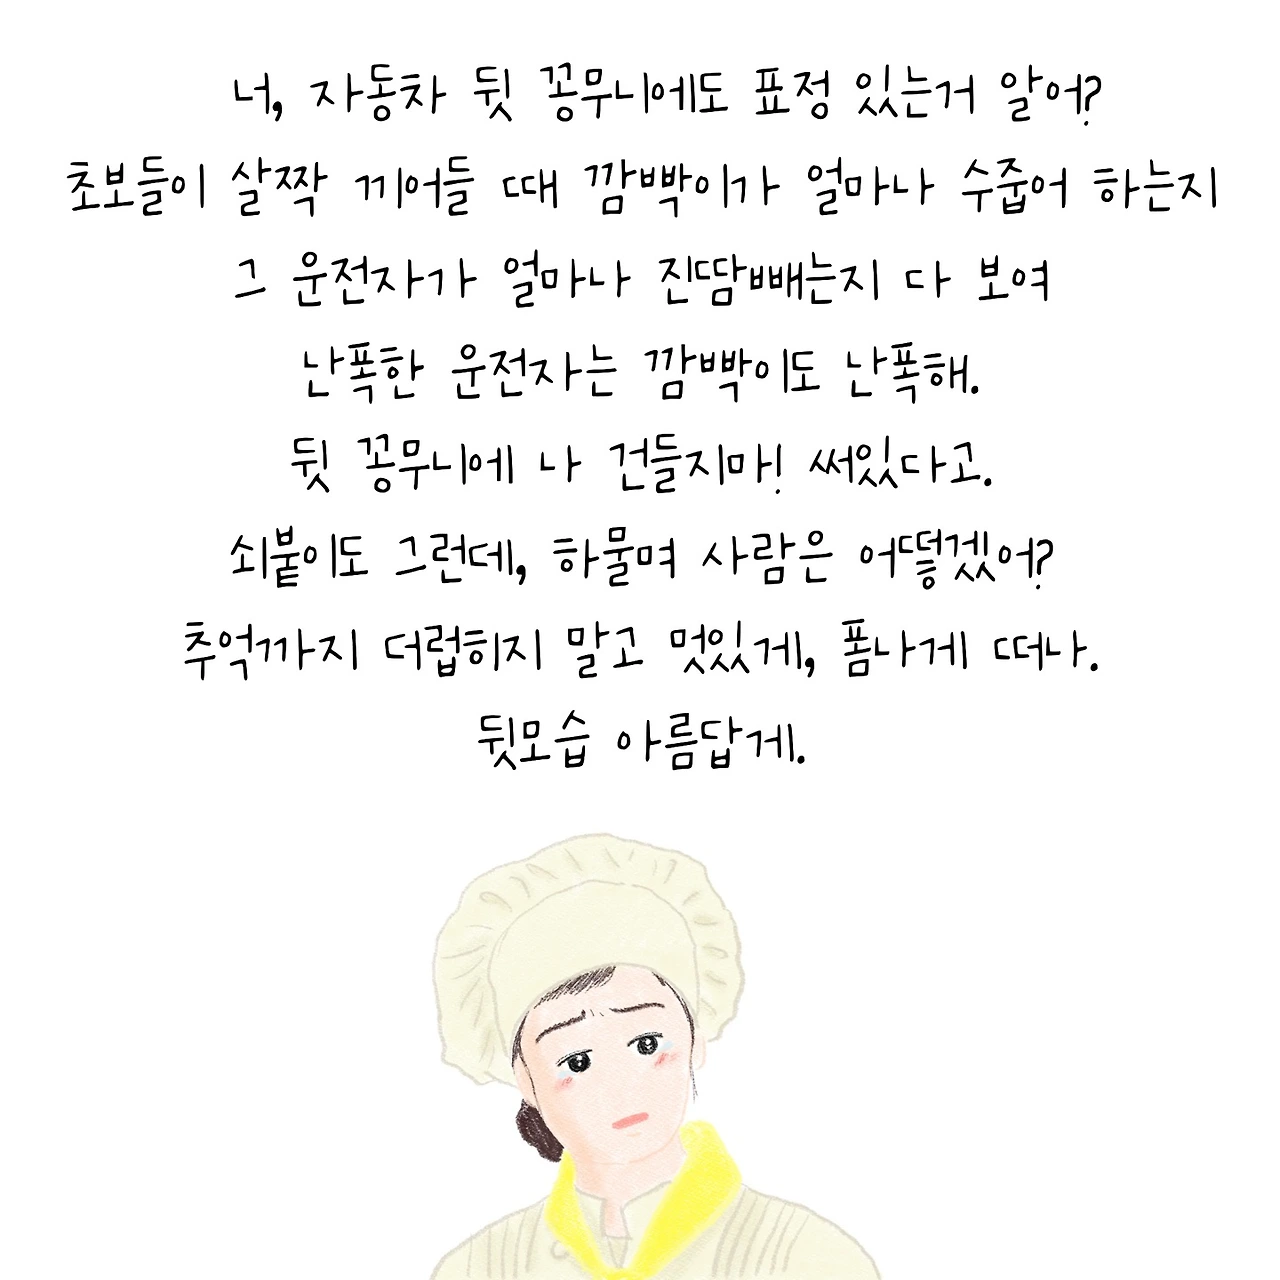 너, 자동차 뒷 꽁무니에도 표정 있는거 알어?
초보들이 살짝 끼어들 때 깜빡이가 얼마나 수줍어 하는지
그 운전자가 얼마나 진땀빼는지 다 보여
난폭한 운전자는 깜빡이도 난폭해.
뒷 꽁무니에 나 건들지마! 써있다고.
쇠붙이도 그런데, 하물며 사람은 어떻겠어?
추억까지 더럽히지 말고 멋있게, 폼나게 떠나.
뒷모습 아름답게.